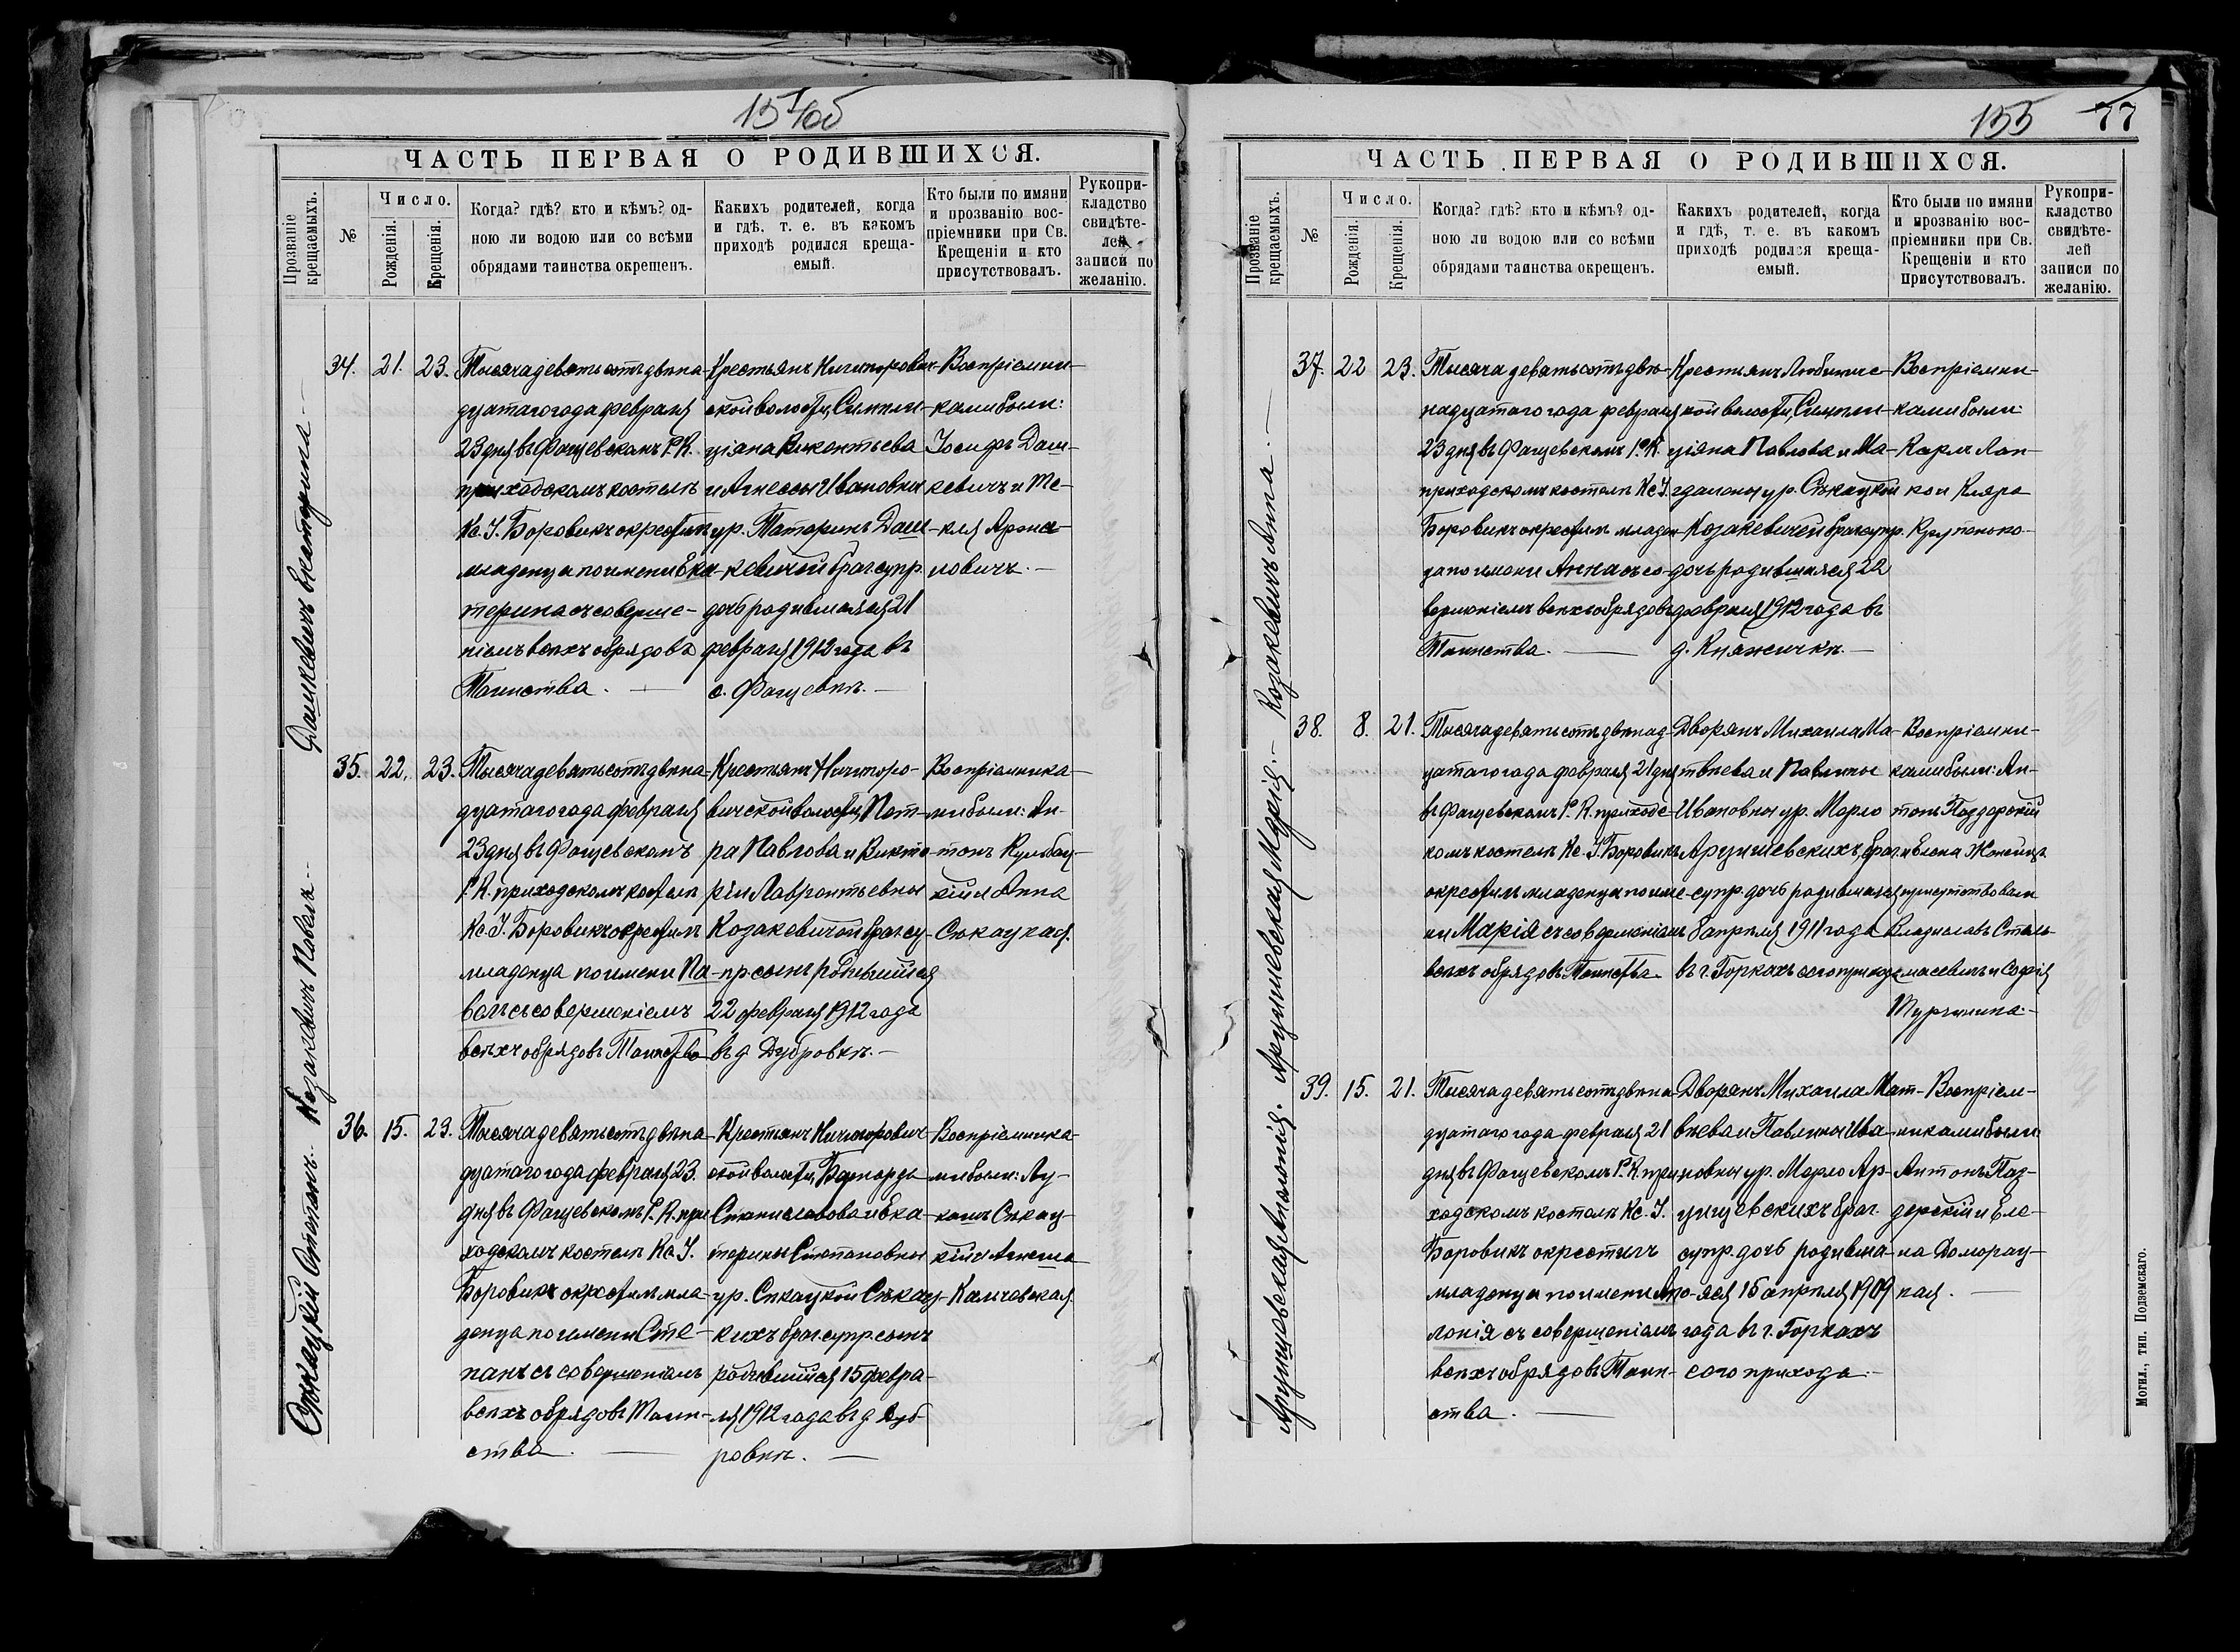 154об
ЧАСТЬ ПЕРВАЯ О РОДИВШИХСЯ.
Прозваніе крещаемыхъ.
№
Число.
Рожденія.
Крещенія.
Когда? гдѣ? кто и кѣмъ? од-
ною ли водою или со всѣми
обрядами таинства окрещенъ.
Какихъ родителей, когда
и гдѣ, т. е. въ какомъ
приходѣ родился креща-
емый.
Кто были по имяни
и прозванію вос-
пріемники при Св.
Крещеніи и кто
присутствовалъ.
Рукопри-
кладство
свидѣте-
лей
записи по
желанію.
Дашкевичъ Екатерина
34. 21. 23.
Тысяча девятьсотъ двѣна-
дцатаго года февраля
23 дня въ Фащевскомъ Р. К.
приходскомъ костелѣ
Кс. І. Боровикъ окрестилъ
младенца по имени Ека-
терина съ соверше-
ніемъ всѣхъ обрядовъ
Таинства.
Крестьянъ Ничипорович-
ской волости, Симпли-
ціяна Викентьева
и Агнессы Ивановны
ур. Таторинъ Даш-
кевичей брач. супр.
дочь родившаяся 21
февраля 1912 года въ
с. Фащевкѣ.
Воспріемни-
ками были:
Іосифъ Даш-
кевичъ и Те-
кля
новичъ.
Козакевичъ Павелъ
35. 22. 23.
Тысяча девятьсотъ двѣна-
дцатаго года февраля
23 дня въ Фащевскомъ
Р. К. приходскомъ костелѣ
Кс. І. Боровикъ окрестилъ
младенца по имени Па-
велъ съ совершеніемъ
всѣхъ обрядовъ Таинства
Крестьянъ Ничипоро-
вичской волости, Пет-
ра Павлова и Викто-
ріи Лаврентьевны
Козакевичей брач. су-
пр. сынъ родившійся
22 февраля 1912 года
въ д. Дубровкѣ.
Воспріемника-
ми были: Ан-
тонъ Кулбац-
кій и Анна
Сѣкацкая.
Сѣкацкій Степанъ
36. 15. 23.
Тысяча девятьсотъ двѣна-
дцатаго года февраля 23.
дня въ Фащевскомъ Р. К. при-
ходскомъ костелѣ Кс. І.
Боровикъ окрестилъ мла-
денца по имени Сте-
панъ съ совершеніемъ
всѣхъ обрядовъ Таин-
ства.
Крестьянъ Ничипорович-
ской волости, Бернарда
Станиславова и Ека-
терины Степановны
ур. Сѣкацкой Сѣкац-
кихъ брач. супр. сынъ
родившійся 15 февра-
ля 1912 года въ д. Дуб-
ровкѣ.
Воспріемника-
ми были: Лу-
кашъ Сѣкац-
кій и Агнеша
155 77
ЧАСТЬ ПЕРВАЯ О РОДИВШИХСЯ.
Прозваніе крещаемыхъ.
№
Число.
Рожденія.
Крещенія.
Когда? гдѣ? кто и кѣмъ? од-
ною ли водою или со всѣми
обрядами таинства окрещенъ.
Какихъ родителей, когда
и гдѣ, т. е. въ какомъ
приходѣ родился креща-
емый.
Кто были по имяни
и прозванію вос-
пріемники при Св.
Крещеніи и кто
присутствовалъ.
Рукопри-
кладство
свидѣте-
лей
записи по
желанію.
Козакевичъ Анна.
37. 22 23.
Тысяча девятьсотъ двѣ-
надцатаго года февраля
23 дня въ Фащевскомъ Р. К.
приходскомъ костелѣ Кс. І.
Боровикъ окрестилъ младен-
ца по имени Анна съ со-
вершеніемъ всѣхъ обрядовъ
Таинства.
Крестьянъ Любиниче-
ской волости, Симпли-
ціяна Павлова и Ма-
гдалены ур. Сѣкацкой
Козакевичей брач. супр.
дочь родившаяся 22
февраля 1912 года въ
д. Княжичкѣ.
Воспріемни-
ками были:
Карлъ Лап-
ко и Кляра
Арцишевская Марія.
38. 8. 21.
Тысяча девятьсотъ двѣнад-
цатаго года февраля 21 дня
въ Фащевскомъ Р. К. приходс-
комъ костелѣ Кс. І. Боровикъ
окрестилъ младенца по име-
ни Марія съ совершеніемъ
всѣхъ обрядовъ Таинства.
Дворянъ Михаила Ма-
твѣева и Павлины
Ивановны ур. Мерло
Арцишевскихъ, брач.
супр. дочь родившаяся
8 апрѣля 1911 года
въ г. Горкахъ сего прихода
Воспріемни-
ками были: Ан-
тонъ Паздерскій
и Елена
присутствовали
Владиславъ Сталь-
масевичъ и Софія
Турчинина.
Арцишевская Аполонія.
39. 15. 21.
Тысяча девятьсотъ двѣна-
дцатаго года февраля 21
дня въ Фащевскомъ Р. К. при-
ходскомъ костелѣ Кс. І.
Боровикъ окрестилъ
младенца по имени Апо-
лонія съ совершеніемъ
всѣхъ обрядовъ Таин-
ства.
Дворянъ Михаила Мат-
вѣева и Павлины Ива-
новны ур. Мерло Ар-
цишевскихъ брач.
супр. дочь родивша-
яся 15 апрѣля 1909
года въ г. Горкахъ
сего прихода.
Воспріем-
никами были:
Антонъ Паз-
дерскій и Еле-
на Доморац-
кая.
Могил., тип. Подземскаго.